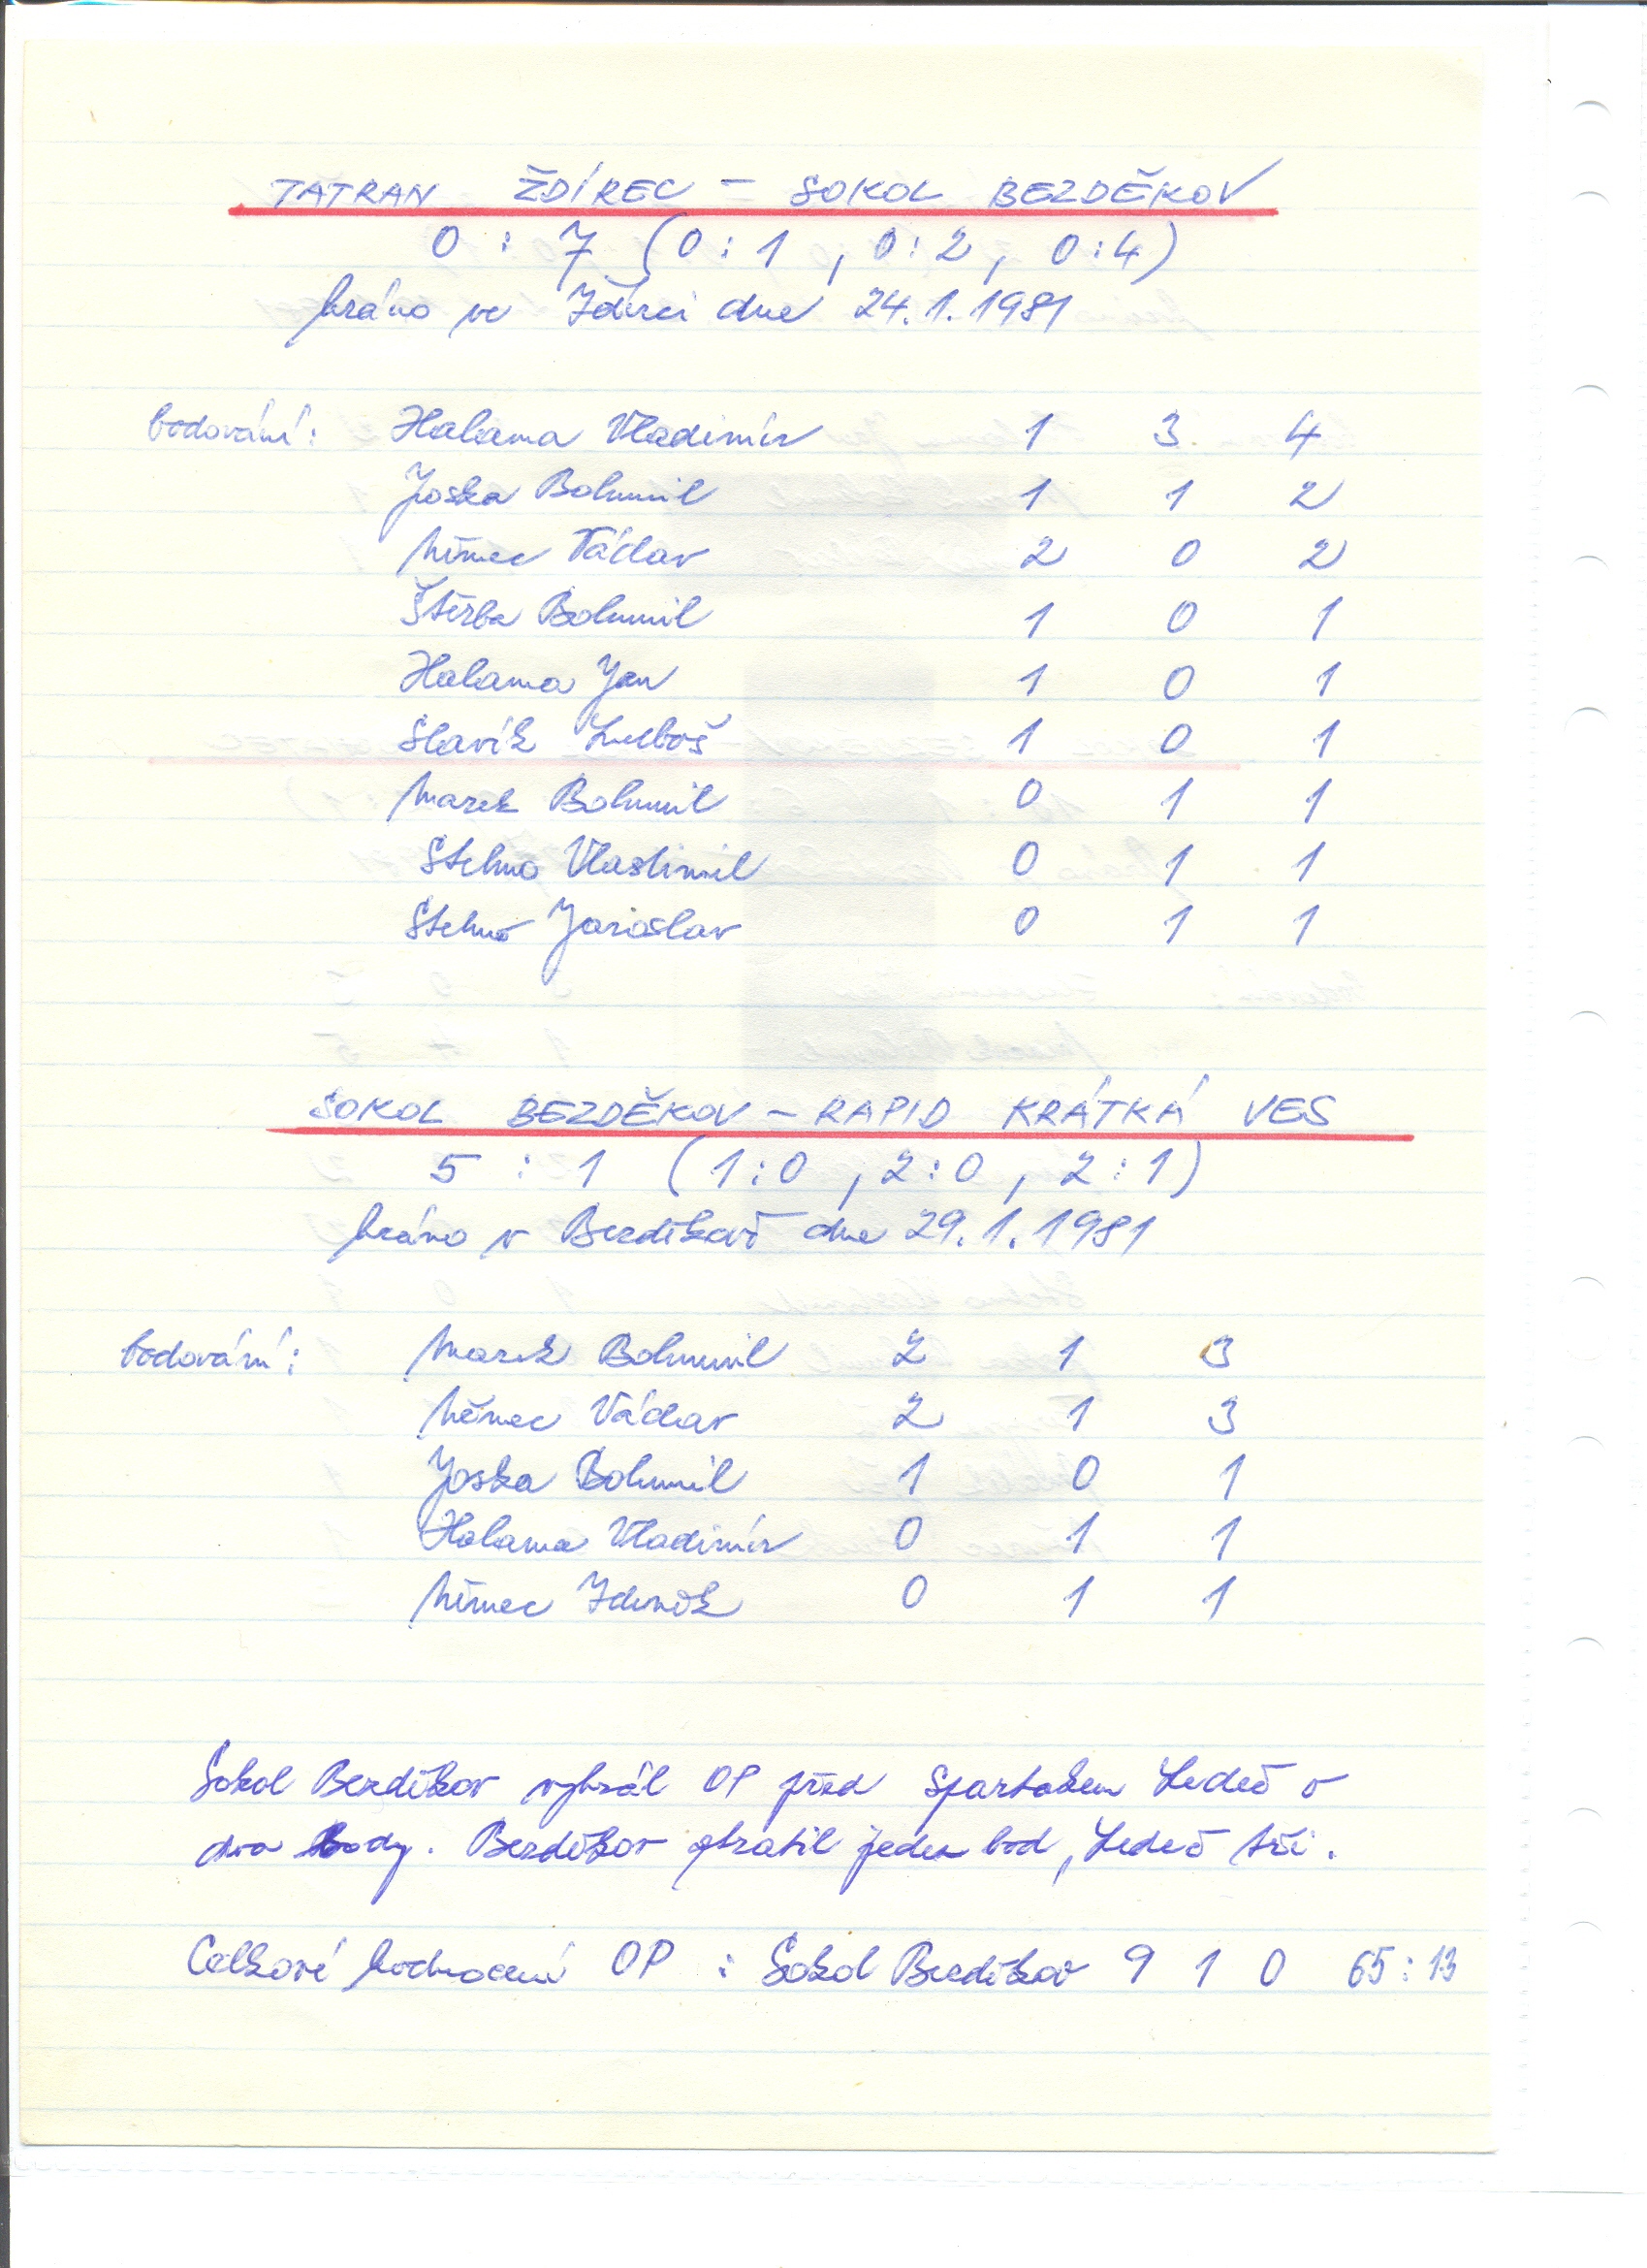 TATRAN ŽDÍREC - SOKOL BEZDĚKOV
0 : 7 (0:1, 0:2, 0:4)
hráno ve Ždírci dne 24.1.1981
bodování: Halama Vladimír 1 3 4
Joska Bohumil 1 1 2
Němec Václav 2 0 2
Štěrba Bohumil 1 0 1
Halama Jan 1 0 1
Slavík Luboš 1 0 1
Marek Bohumil 0 1 1
Stehno Vlastimil 0 1 1
Stehno Jaroslav 0 1 1
SOKOL BEZDĚKOV - RAPID KRÁTKÁ VES
5 : 1 (1:0, 2:0, 2:1)
hráno v Bezděkově dne 29.1.1981
bodování: Marek Bohumil 2 1 3
Němec Václav 2 1 3
Joska Bohumil 1 0 1
Halama Vladimír 0 1 1
Němec Zdeněk 0 1 1
Sokol Bezděkov vyhrál OP před Spartakem Ledeč o
dva body. Bezděkov ztratil jeden bod, Ledeč tři.
Celkové hodnocení OP : Sokol Bezděkov 9 1 0 65:13